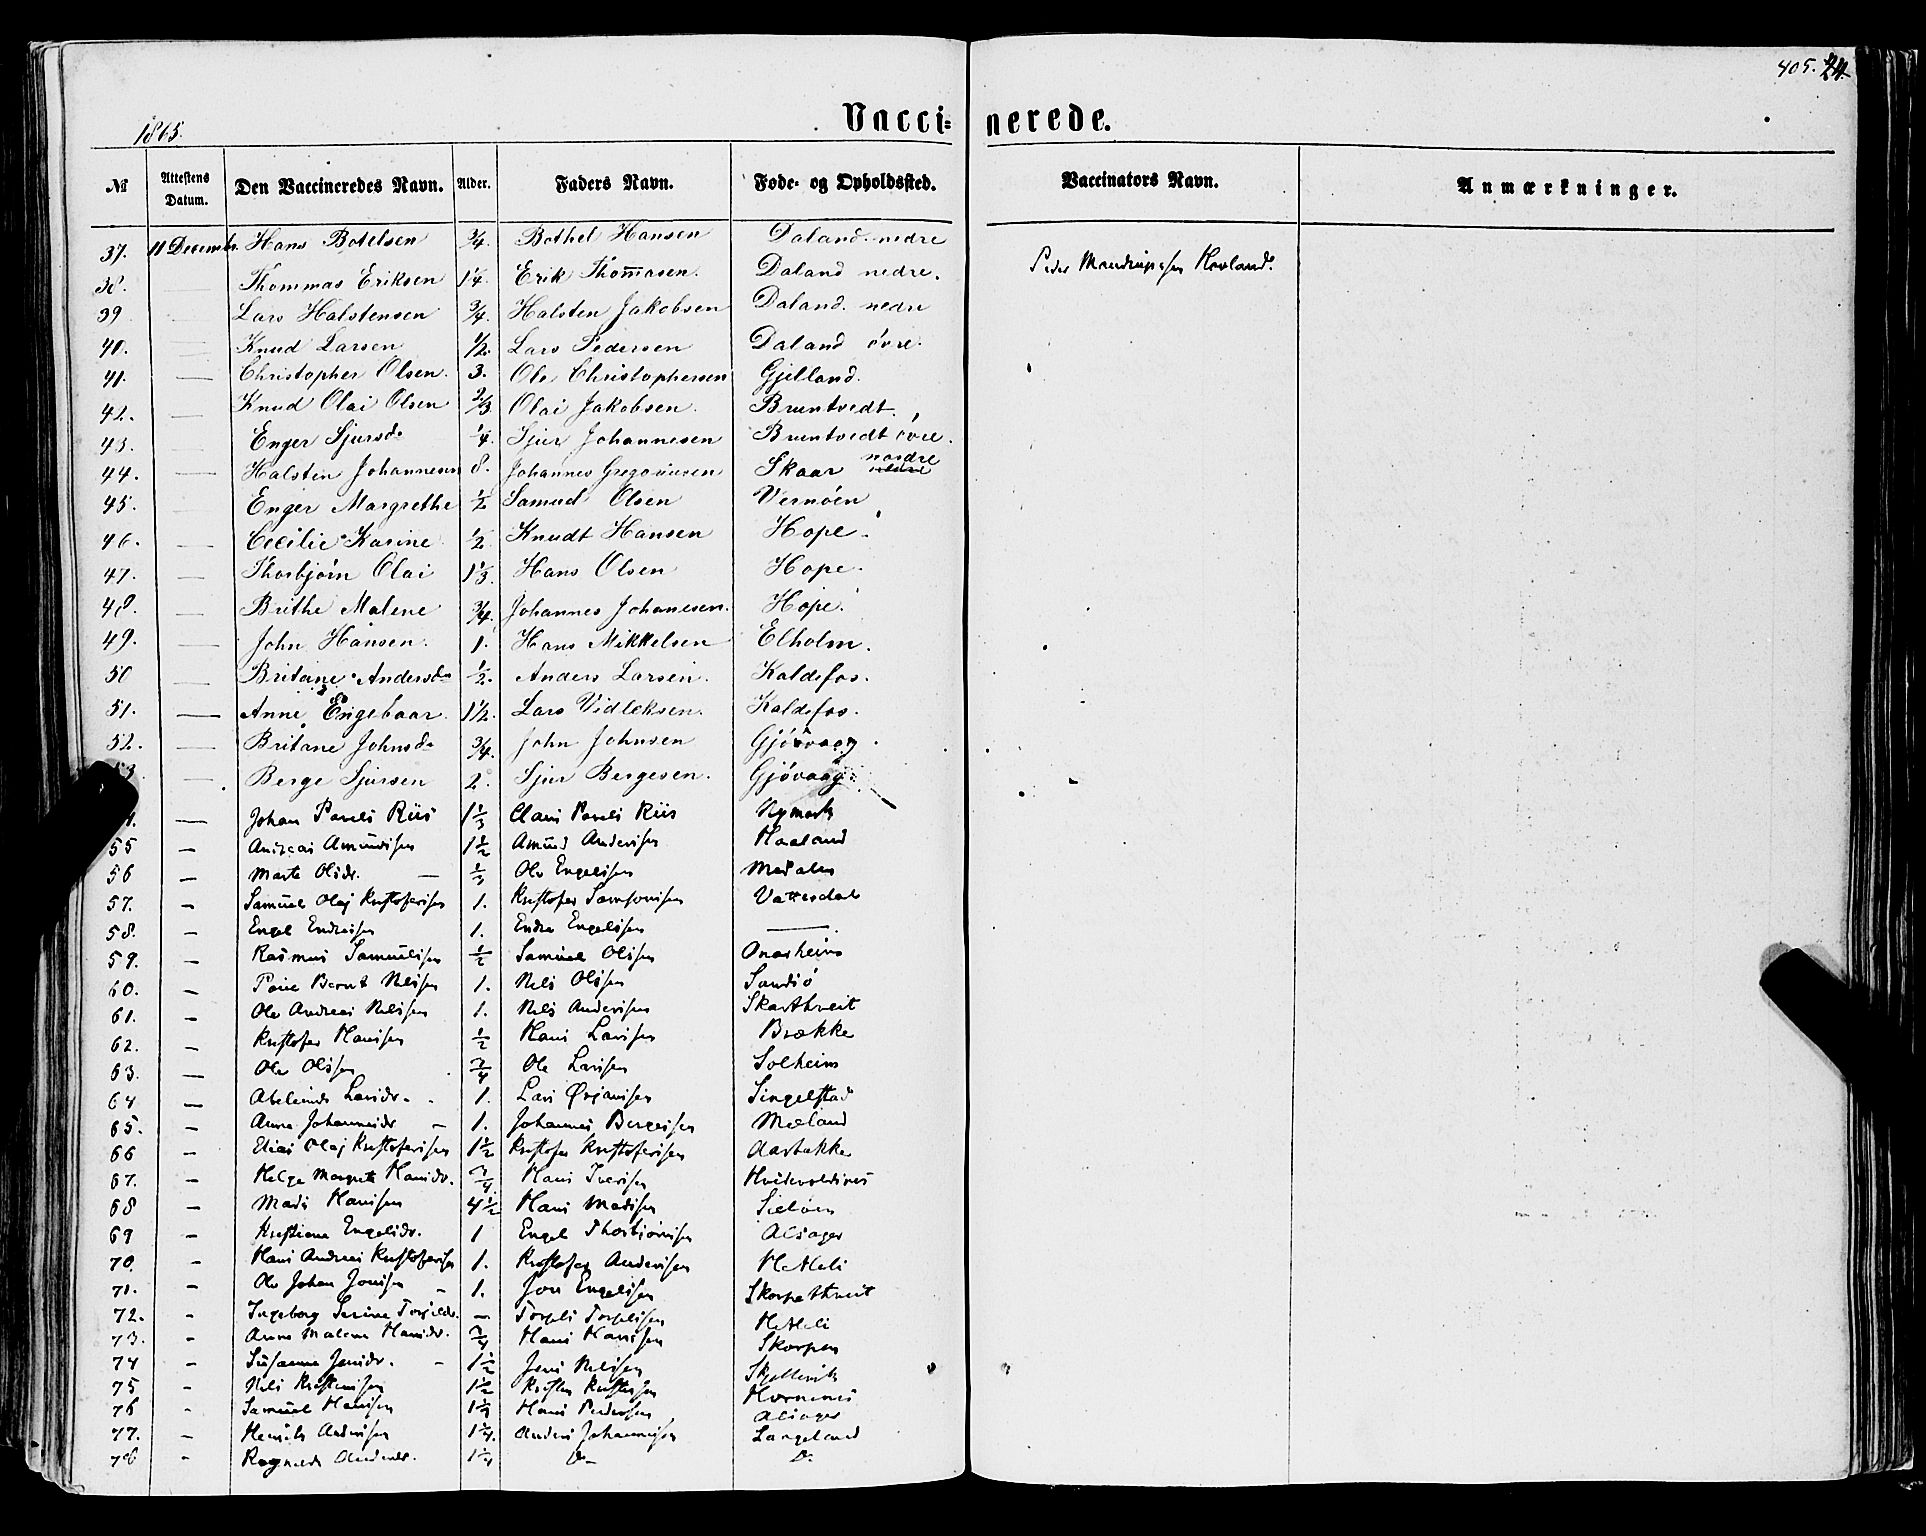 405. 24.
1865.
Vacci= nerede.
№ Attestens Datum. Den Vaccineredes Navn. Alder. Faders Navn. Føde- og Opholdssted. Vaccinators Navn. Anmærkninger.
37. 11 Decembr. Hans Botelsen 3/4 Bothel Hansen Daland nedre
38. — Thommas Eriksen 1 1/4. Erik Thom̄asen. Daland nedre. Peder Mandrupsen Hovland.
39 — Lars Halstensen 3/4. Halsten Jakobsen Daland. nedre
40. — Knud Larsen 1/2. Lars Pedersen Daland övre.
41. — Christopher Olsen. 3. Ole Christophersen Gjelland.
42. — Knud Olai Olsen 2/3 Olai Jakobsen. Bruntvedt.
43. — Enger Sjursd. 1/4. Sjur Johannesen Bruntvedt övre.
44. — Halsten Johannesen 8. Johannes Gregoriusen Skaar nordre
45. — Enger Margrethe 1/2 Samuel Olsen Vernöen
46. — Cicilie Karine 1/2 Knudt Hansen Hope.
47. — Thorbjörn Olai 1 1/3. Hans Olsen Hope.
48. — Brithe Malene 3/4. Johannes Johanesen. Hope.
49. — John Hansen. 1. Hans Mikkelsen Elholm.
50 — Britane Andersd. 1/2. Anders Larsen. Kaldefos.
51. — Anne Engebaar. 1 1/2. Lars Vidleksen. Kaldefos.
52. — Britane Johnsd. 3/4. John Johnsen Gjövaag.
53. — Berge Sjursen 2. Sjur Bergesen. Gjövaag.
— Johan Pavels Riis 1 1/3 Claus Pavels Riis Nymark
55 — Andreas Amundsen 1 1/2 Amund Andersen Haaland
56 — Marte Olsdr. — 1/3 Ole Engelsen Medalen
57. — Samuel Olaj Kristofersen 1. Kristofer Samsonsen Vattesdal
58. — Engel Endresen 1. Endre Engelsen —
59. — Rasmus Samuelsen 1/2 Samuel Olsen Onarheim
60. — Bernt Nelsen 1. Nels Olsen Sandsö
61. — Ole Andreas Nelsen 1. Nels Andersen Skartveit
62. — Kristofer Hansen 1/2 Hans Larsen Brække
63. — Ole Olsen 3/4 Ole Larsen Solheim
64 — Abelone Larsdr. 1. Lars Ørjansen Singelstad
65. — Anna Johannesdr — 1. Johannes Bergesen Mæland
66 — Elias Olaj Kristofersen 1 1/2 Kristofer Kristofersen Aarbakke
67. — Helge Margrete Hansdr. 3/4 Hans Iversen
68 — Mads Hansen 4 1/2 Hans Madsen Sielöen
69 — Kristiane Engelsdr. 1 Engel Thorbiörnsen Alsager
70. — Hans Andreas Kristofersen 1. Kristofer Andersen Hetleli
71. — Ole Johan Jonsen — 1. Jon Engelsen Skorpethveit
72. — Ingeborg Serine Torjelsdr. — Torjels Torjelsen Hetleli
73. — Anne Malene Hansdr. 3/4 Hans Hansen Skorpen
74 — Susanne Jensdr. — 1 1/2 Jens Nelsen Skjellevik
75 — Nels Kristensen 1 1/2 Kristen Kristensen Hornenes
76 — Samuel Hansen 1 1/4 Hans Pedersen Alsager
77. — Henrik Andersen 1 1/4. Anders Johannesen Langeland
78 — Ragnilde Andersdr. 1 1/4 Do— Do.